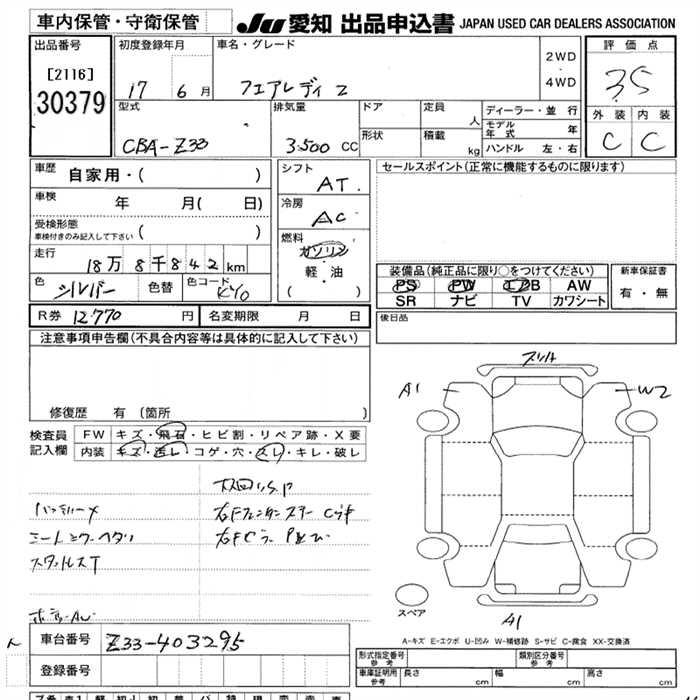 車内保管・守衛保管
JU 愛知 出品申込書 JAPAN USED CAR DEALERS ASSOCIATION
出品番号
[2116]
30379
初度登録年月
17 6 月
車名・グレード
フェアレディ Z
2WD
・
4WD
評価点
3.5
外装 内装
C C
型式
CBA-Z33
排気量
3500 cc
ドア
形状
定員 人
積載 kg
ディーラー・並行
モデル年式 年
ハンドル 左・右
車歴 自家用・( )
車検 年 月( 日)
受検形態
車検付きのみ記入して下さい ( )
走行
18万 8千842 km
色 シルバー 色替 色コード KY0
シフト
AT
冷房
AC
燃料
ガソリン
・
軽・油
( )
セールスポイント(正常に機能するものに限ります)
装備品(純正品に限り○をつけてください)
PS PW エアB AW
SR ナビ TV カワシート
新車保証書
有・無
R券 12,770 円 名変期限 月 日
後日品
注意事項申告欄(不具合内容等は具体的に記入して下さい)
修復歴 有 (箇所 )
検査員記入欄
FW キズ・飛石・ヒビ割・リペア跡・X要
内装 キズ・汚レ・コゲ・穴・スレ・キレ・破レ
バッテリー×
シートシワ・ヘタリ
スタッドレスT
A1
W2
スペア
A1
A-キズ E-エクボ U-凹み W-補修跡 S-サビ C-腐食 XX-交換済
車台番号 Z33-403295
登録番号
形式指定番号
参考
類別区分番号
参考
車庫証明用
参考
長さ cm 幅 cm 高さ cm